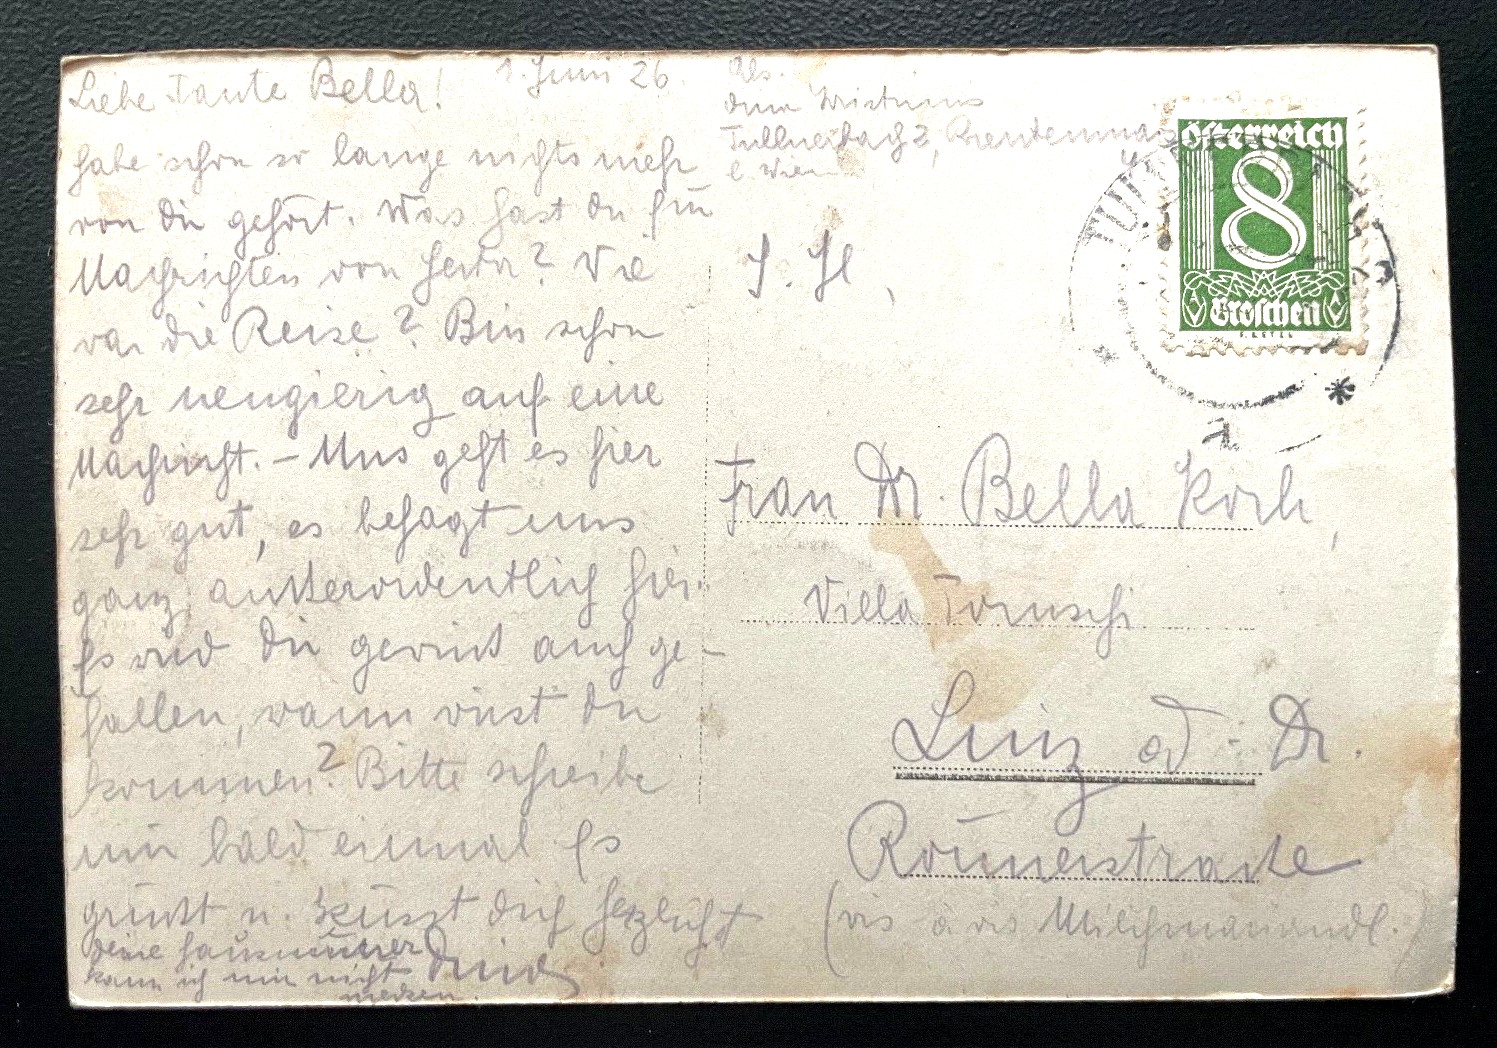 Liebe Tante Bella! 1. Juni 26.
habe schon so lange nichts mehr
von dir gehört. Was hast du für
Nachrichten von Herta? Wie
war die Reise? Bin schon
sehr neugierig auf eine
Nachricht. – Uns geht es hier
sehr gut, es behagt uns
ganz außerordentlich hier.
Es wird dir gewiß auch ge-
fallen, wann wirst du
kommen? Bitte schreibe
mir bald einmal Es
grüßt u. küsst dich herzlichst
deine
Hausnummer
kann ich mir nicht
merken.
Abs.
Tullnerbach 2,
b. Wien
S. Hl,
österreich
8
Groschen
Frau Dr. Bella Koch,
Villa
Linz a.d. - Dr.
Römerstraße
(vis à vis Milchmariandl.)